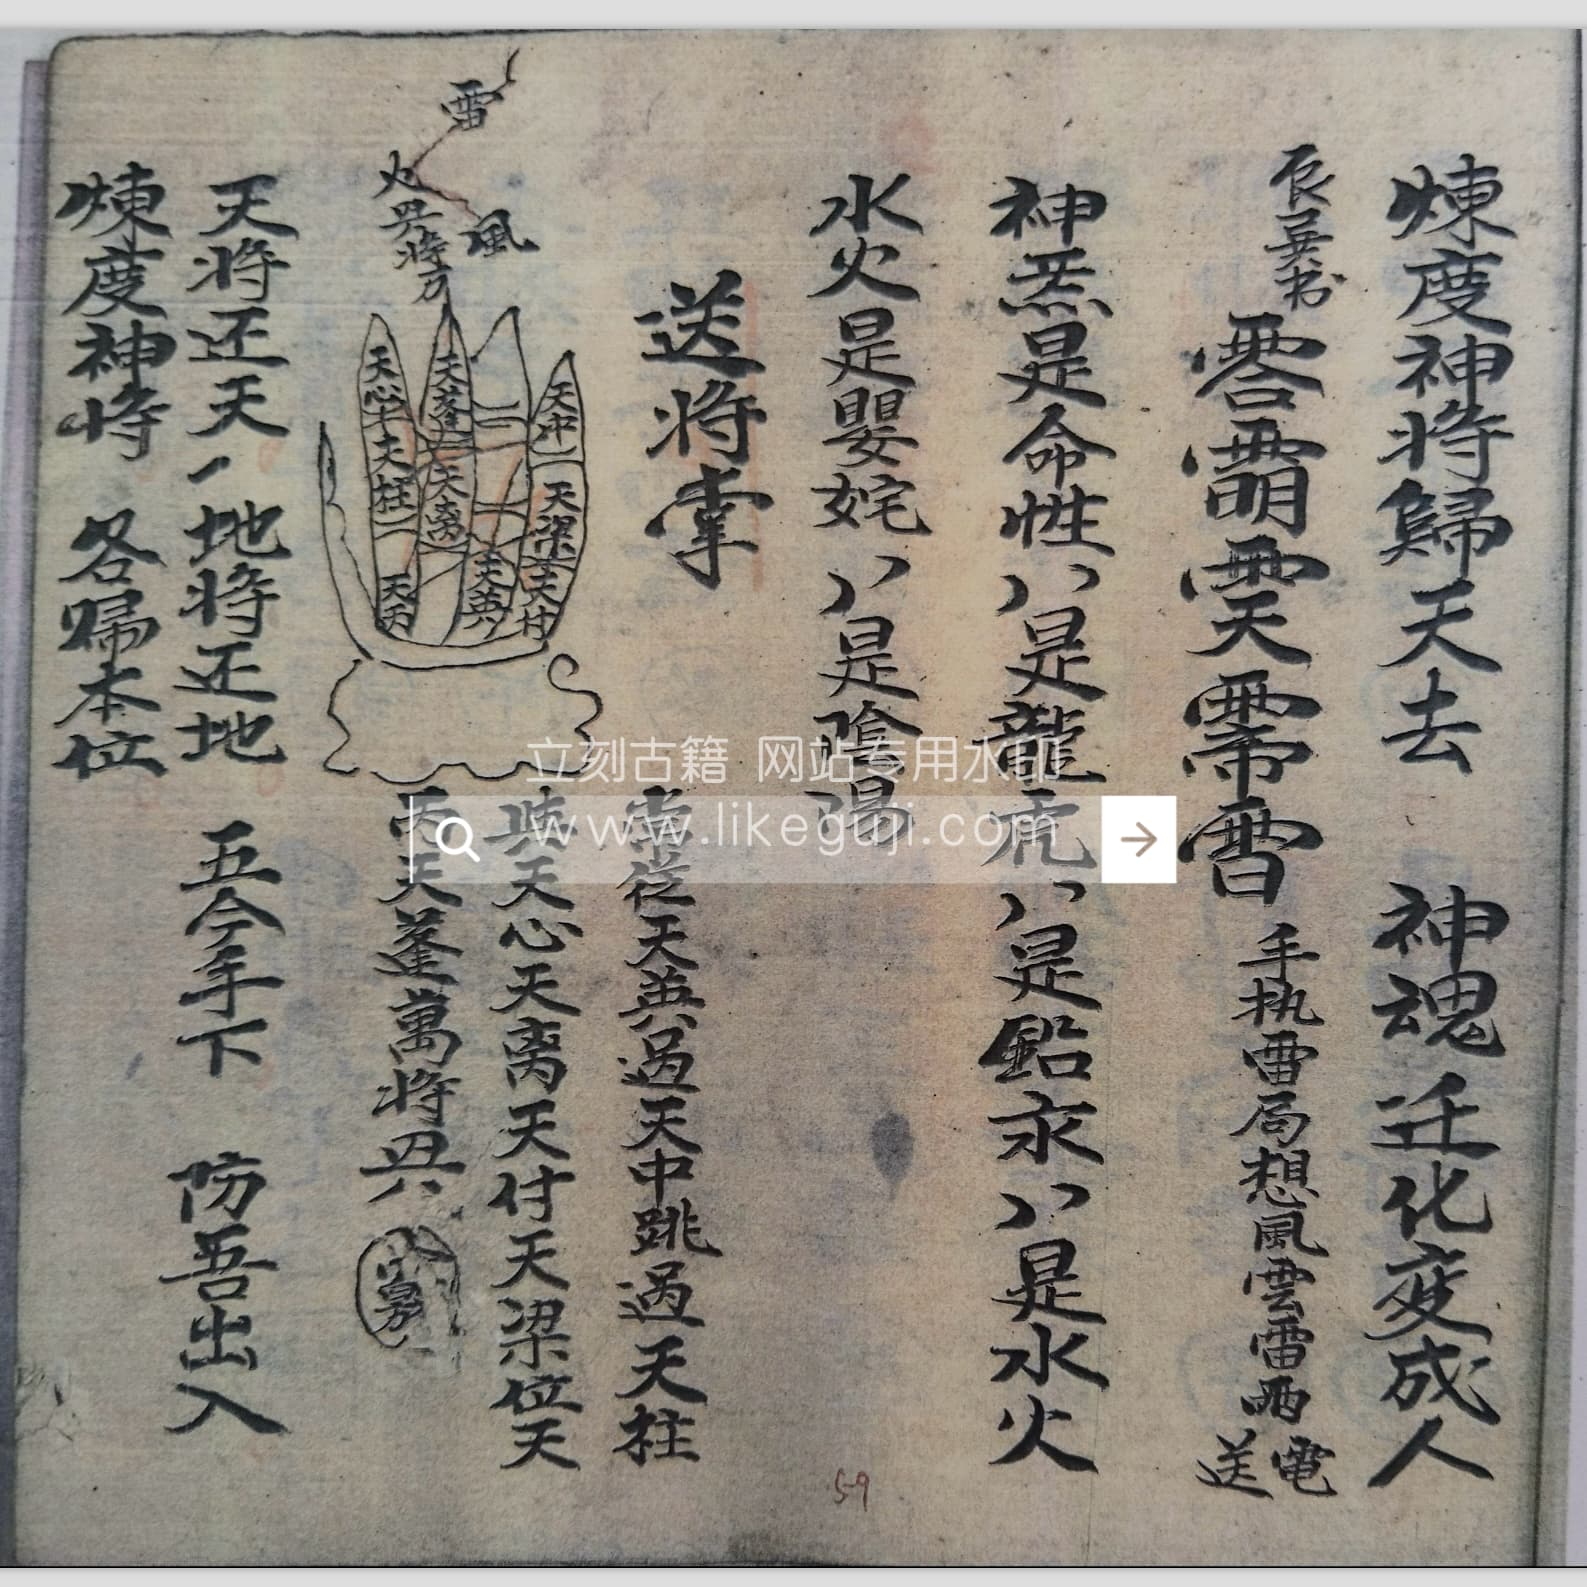 煉度神将歸天去 神魂迁化变成人
辰巽书 霄 手执雷局想風雲雷雨電送
神炁是命性丷是龍虎丷是鉛汞丷是水火
水火是嬰姹丷是陰陽
送将掌
常從天英過天中跳過天柱
天心天离天付天梁位天
丙天蓬萬将兵
雷
火
風
兵将方
天心
天柱
天丙
天蓬
天离
天英
天中
天梁
天付
天将还天丶地将还地 五今手下 防吾出入
煉度神将 各歸本位
59
立刻古籍 网站专用水印
www.likeguji.com